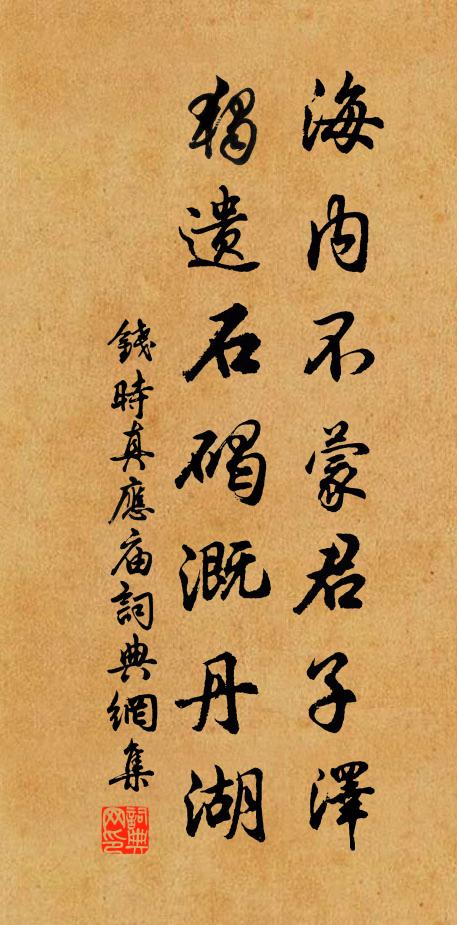 海内不蒙君子澤
獨遺石碣溉丹湖
錢時真應庙詞典網集
詞典网印